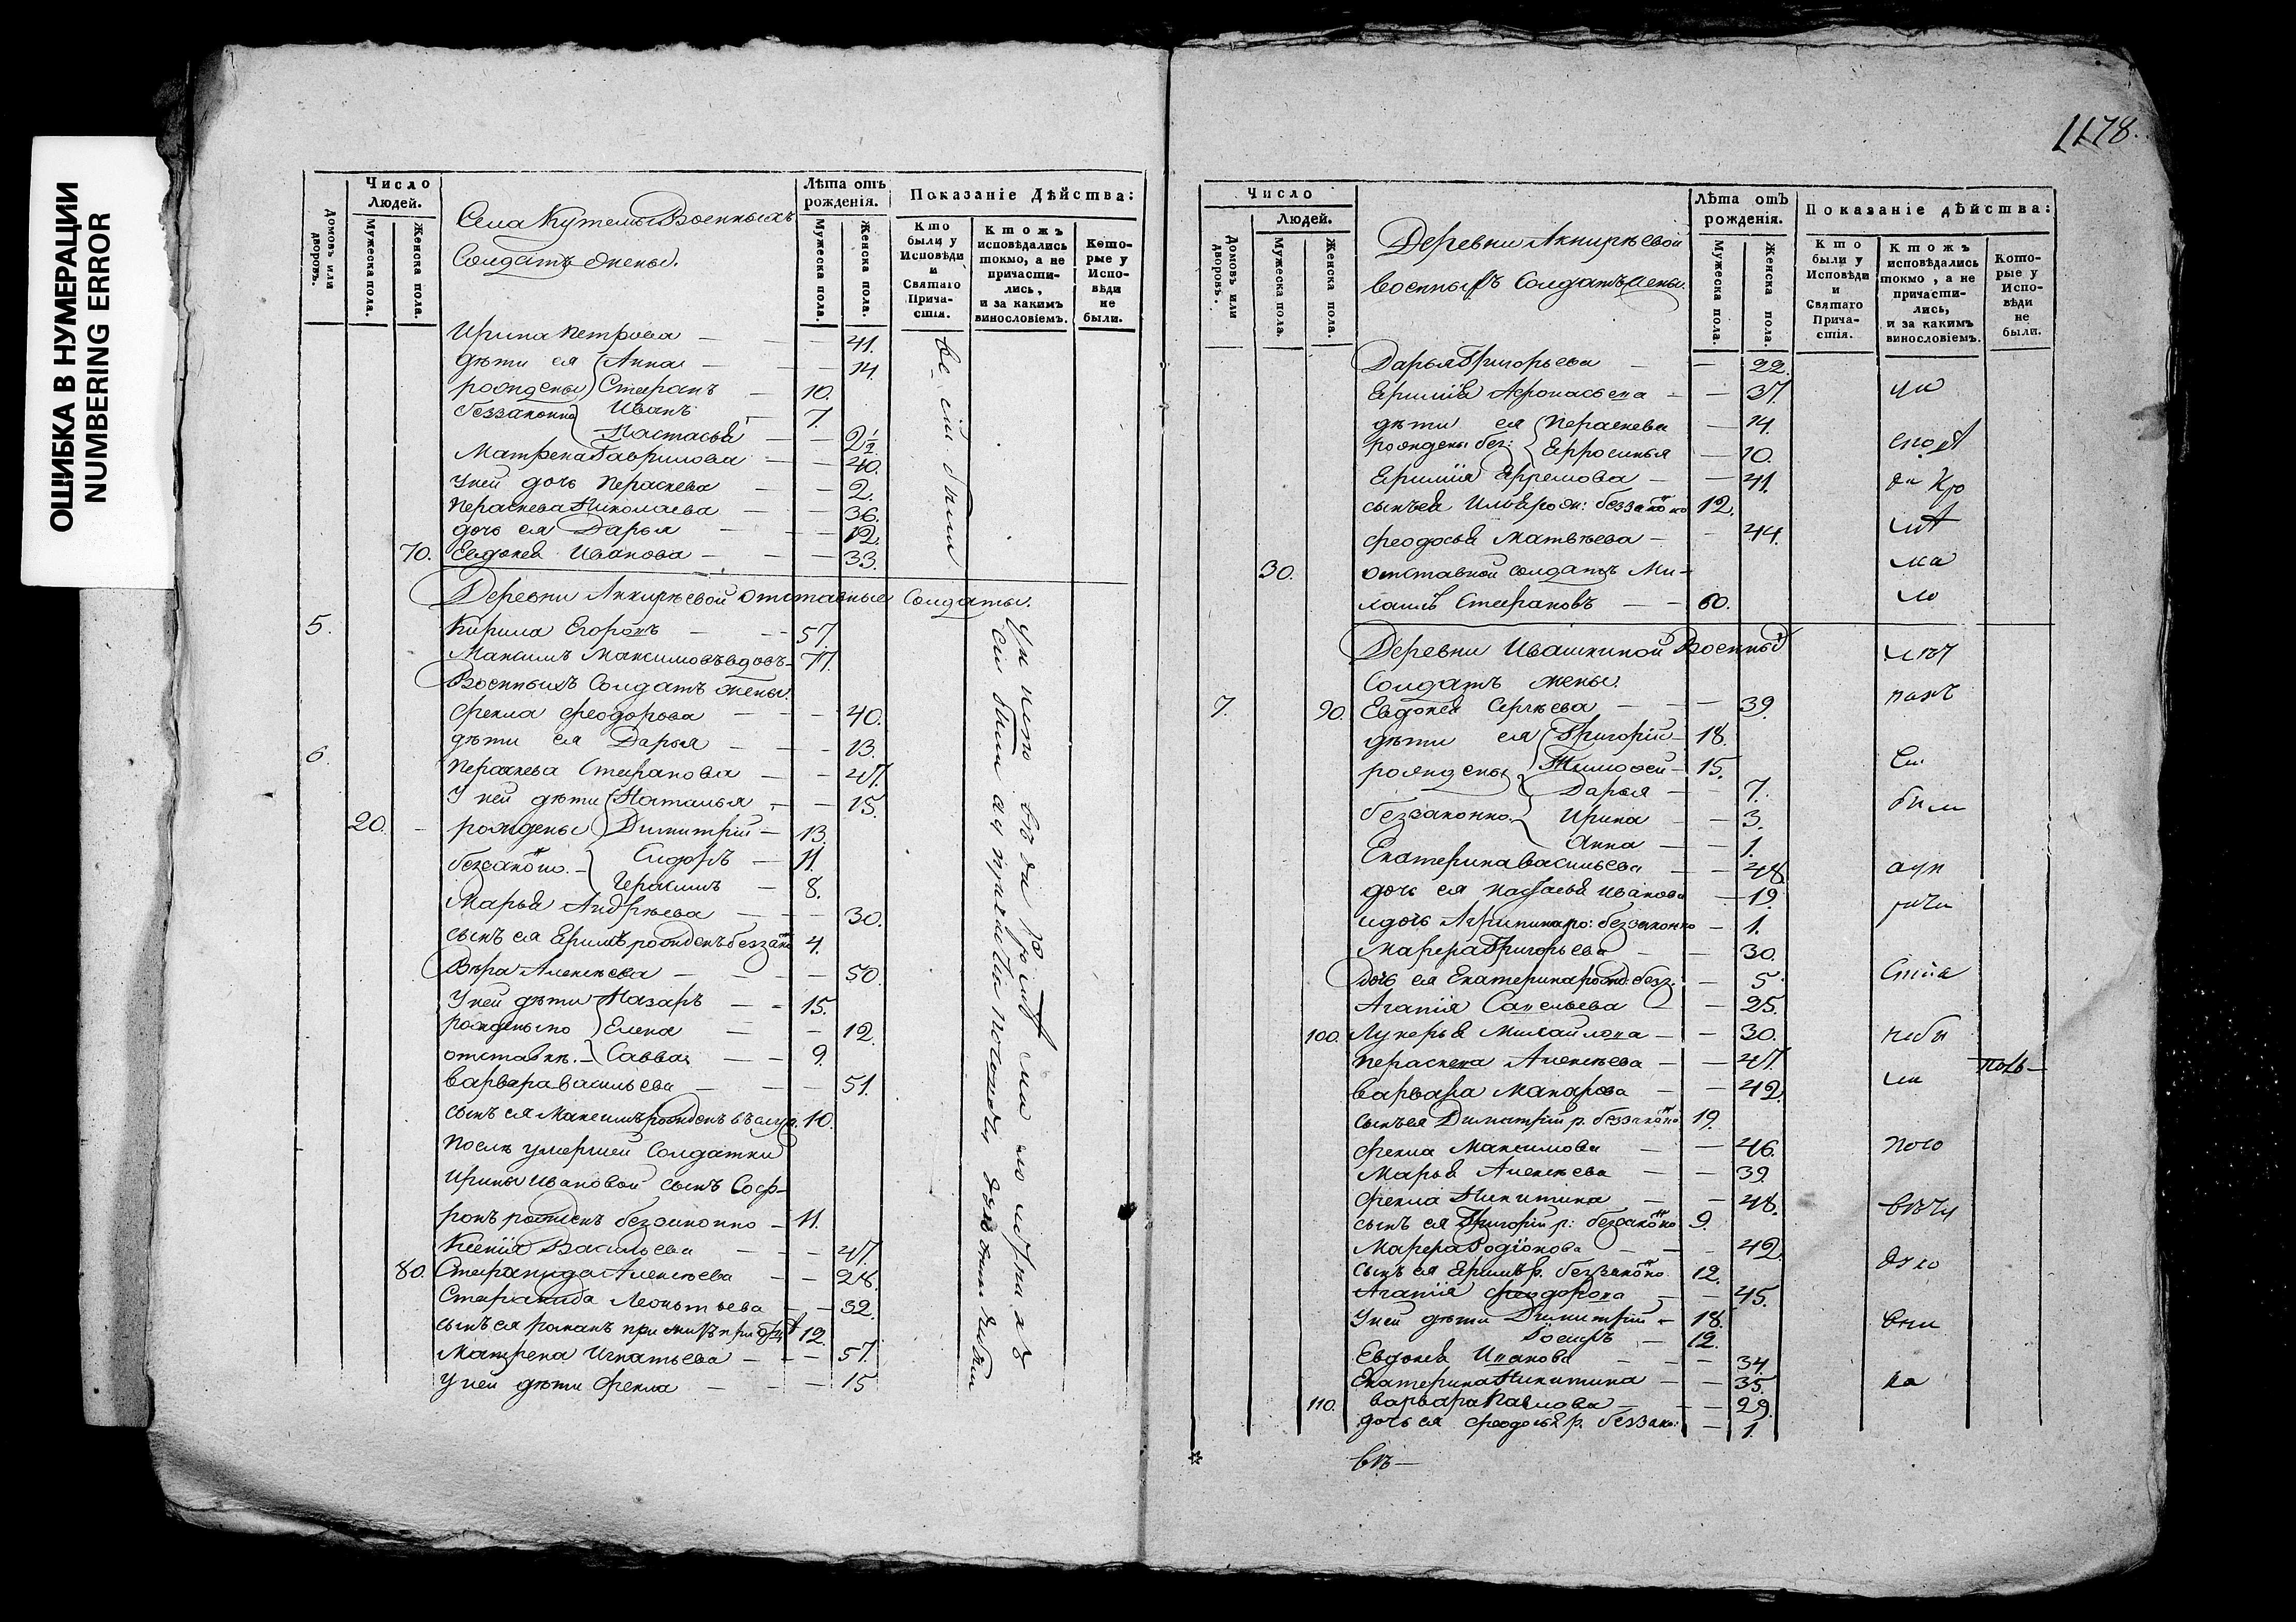 ОШИБКА В НУМЕРАЦИИ
NUMBERING ERROR
Домовъ или дворовъ.
Число Людей.
Мужеска пола.
Женска пола.
Села Кутемы Военныхъ
Солдатъ жены.
Лѣта отъ рожденія.
Мужеска пола.
Женска пола.
Показаніе Дѣйства:
Кто были у Исповѣди и Святаго Причастія.
Ктожъ исповѣдались токмо, а не причастились, и за какимъ винословіемъ.
Которые у Исповѣди не были.
Ирина Петрова — 41.
дѣти ея Анна — 14.
рождены Стефанъ — 10.
беззаконно Иванъ 7.
Настасья — 2 1/2
Матрена Гаврилова — 40.
У ней дочь Пераскева — 2.
Пераскева Николаева — 36.
дочь ея Дарья — 12.
70. Евдокея Иванова — 33.
всѣ были
Деревни Аккирѣевой отставные Солдаты.
5. Кирила Егоровъ — 57.
Максимъ Максимовъ вдовъ — 77.
Военныхъ Солдатъ жены.
Фекла Феодорова — 40.
дѣти ея Дарья — 13.
6. Пераскева Стефанова — 47.
У ней дѣти Наталья — 15.
20. рождены Димитрій — 13.
беззаконно Сидоръ — 11.
Герасимъ — 8.
Марья Андрѣева — 30.
сынъ ея Ефимъ рожденъ беззако 4.
Вѣра Алексѣева — 50.
У ней дѣти Назаръ — 15.
рождены по Елена — 12.
отставкѣ. Савва — 9.
Варвара Васильева — 51.
сынъ ея Максимъ рожденъ 10.
Послѣ умершей Солдатки
Ирины Ивановой сынъ Соф-
ронъ рожденъ беззаконно — 11.
Ксенія Васильева — 47.
80. Степанида Алексѣева — 28.
Степанида Леонтьева — 32.
сынъ ея романъ 12.
Матрена Игнатьева — 57.
У ней дѣти Фекла — 15
1178.
Домовъ или дворовъ.
Число Людей.
Мужеска пола.
Женска пола.
Деревни Аккирѣевой
военныхъ Солдатъ жены.
Лѣта отъ рожденія.
Мужеска пола.
Женска пола.
Показаніе дѣйства:
Кто были у Исповѣди и Святаго Причастія.
Ктожъ исповѣдались токмо, а не причастились, и за какимъ винословіемъ.
Которые у Исповѣди не были.
Дарья Григорьева — 22.
Ефимія Афонасьева — 37.
дѣти ея Пераскева — 14.
рождены без: Ефросинья — 10.
Ефимія Ефремова — 41.
12.
Феодосья Матвѣева — 44.
30. отставной солдатъ Ми-
Стефановъ — 60.
Деревни Ивашкиной Военныхъ
Солдатъ жены.
7. 90. Евдокея Сергѣева — 39.
дѣти ея Григорій — 18.
рождены Тимофей — 15.
Дарья — 7.
беззаконно. Ирина — 3.
Анна — 1.
Екатерина Васильева — 48.
дочь ея Настасья Иванова — 19.
и дочь Агрипина ро: беззаконно — 1.
Марфа Григорьева — 30.
дочь ея Екатерина рожд: безз. — 5.
Агапія Савельева — 25.
100. Лукерья Михайлова — 30.
Пераскева Алексѣева — 47.
Варвара Макарова — 42.
сынъ ея Димитрій р. беззаконно 19.
Фекла Максимова — 46.
Марья Алексѣева — 39.
Фекла Никитина — 48.
сынъ ея Григорій р: беззаконно 9.
Марфа Родіонова — 42.
сынъ ея Ефимъ р. беззаконно 12.
Агапія Феодорова — 45.
У ней дѣти Димитрій — 18.
Іосифъ — 12.
Евдокея Иванова — 34.
Екатерина Никитина — 35.
110. Варвара Павлова — 29.
дочь ея Феодосья р. беззако: — 1.